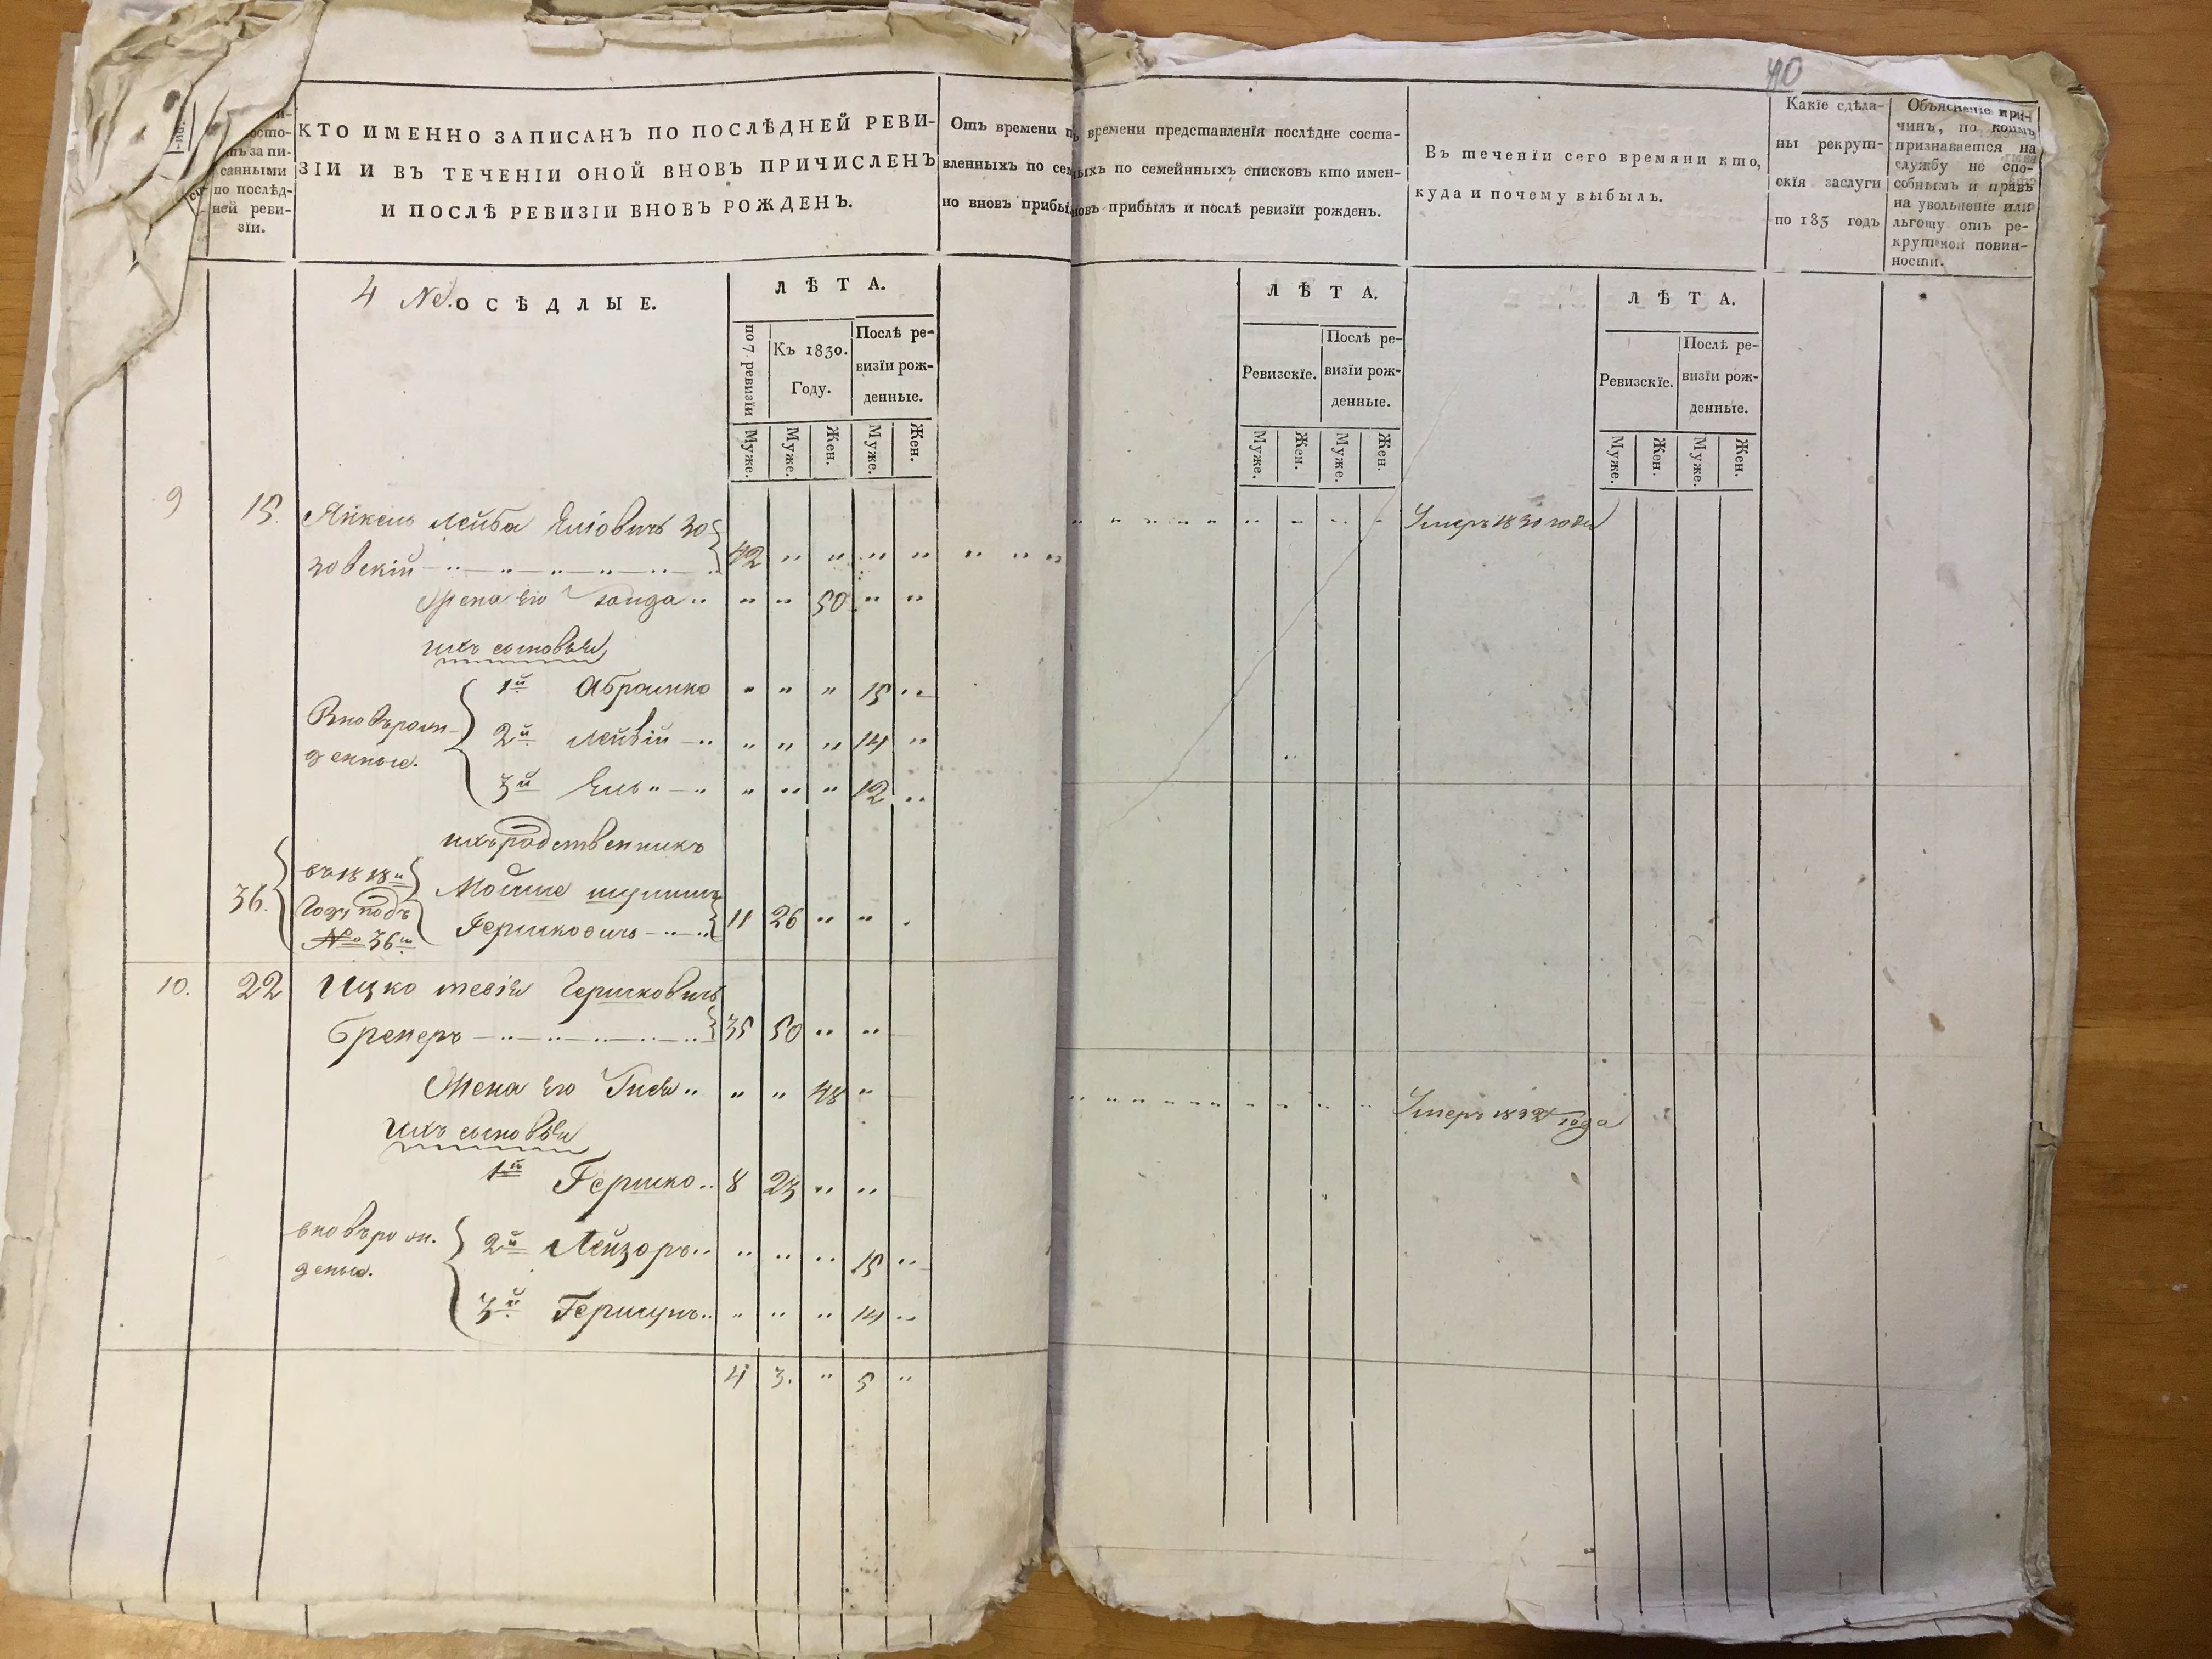 40
ни-
досто-
ить за пи-
санными
по послѣд-
ней реви-
зїи.
КТО ИМЕННО ЗАПИСАНЪ ПО ПОСЛѢДНЕЙ РЕВИ-
ЗІИ И ВЪ ТЕЧЕНІИ ОНОЙ ВНОВЬ ПРИЧИСЛЕНЪ
И ПОСЛѢ РЕВИЗІИ ВНОВЬ РОЖДЕНЪ.
Отъ времени п
вленныхъ по сем
но вновь прибы
ъ времени представленїя послѣдне соста-
ныхъ по семейнныхъ списковъ кто имен-
новь прибылъ и послѣ ревизїи рожденъ.
Въ теченїи сего времяни кто,
куда и почему выбылъ.
Какїе сдѣла-
ны рекрут-
скїя заслуги
по 183 годъ
Объясненїе при-
чинъ, по коимъ
признавается на
службу не спо-
собнымъ и правъ
на увольненїе или
льготу отъ ре-
крутской повин-
ности.
4 №. ОСѢДЛЫЕ.
ЛѢТА.
по 7 ревизїи
Къ 1830.
Году.
Послѣ ре-
визїи рож-
денные.
Муже.
Муже.
Жен.
Муже.
Жен.
ЛѢТА.
Ревизскїе.
Послѣ ре-
визїи рож-
денные.
Муже.
Жен.
Муже.
Жен.
ЛѢТА.
Ревизскїе.
Послѣ ре-
визїи рож-
денные.
Муже.
Жен.
Муже.
Жен.
9 15. Янкель Лейба Еліовичъ Зо- Умеръ 1830 года
зовскій 42 " " " "
Жена его " " 50 " "
ихъ сыновья
1й Абрамко " " " 15 "
Вновьрож-
денные.
2й Лейвій " " " 14 "
3й Ель " " " 12 "
ихъ родственникъ
36. въ 1818м
Году подъ
№ 36м
Мошке
Гершковичъ 11 26 " "
10. 22 Ицко Гершковичъ
Бренеръ 35 50 " "
Жена его " " 48 "
ихъ сыновья
1й Гершко 8 23 " "
вновьрож.
деные.
2й Лейзоръ " " " 15 "
3й Гершунъ " " " 14 "
4 3. " 5 "